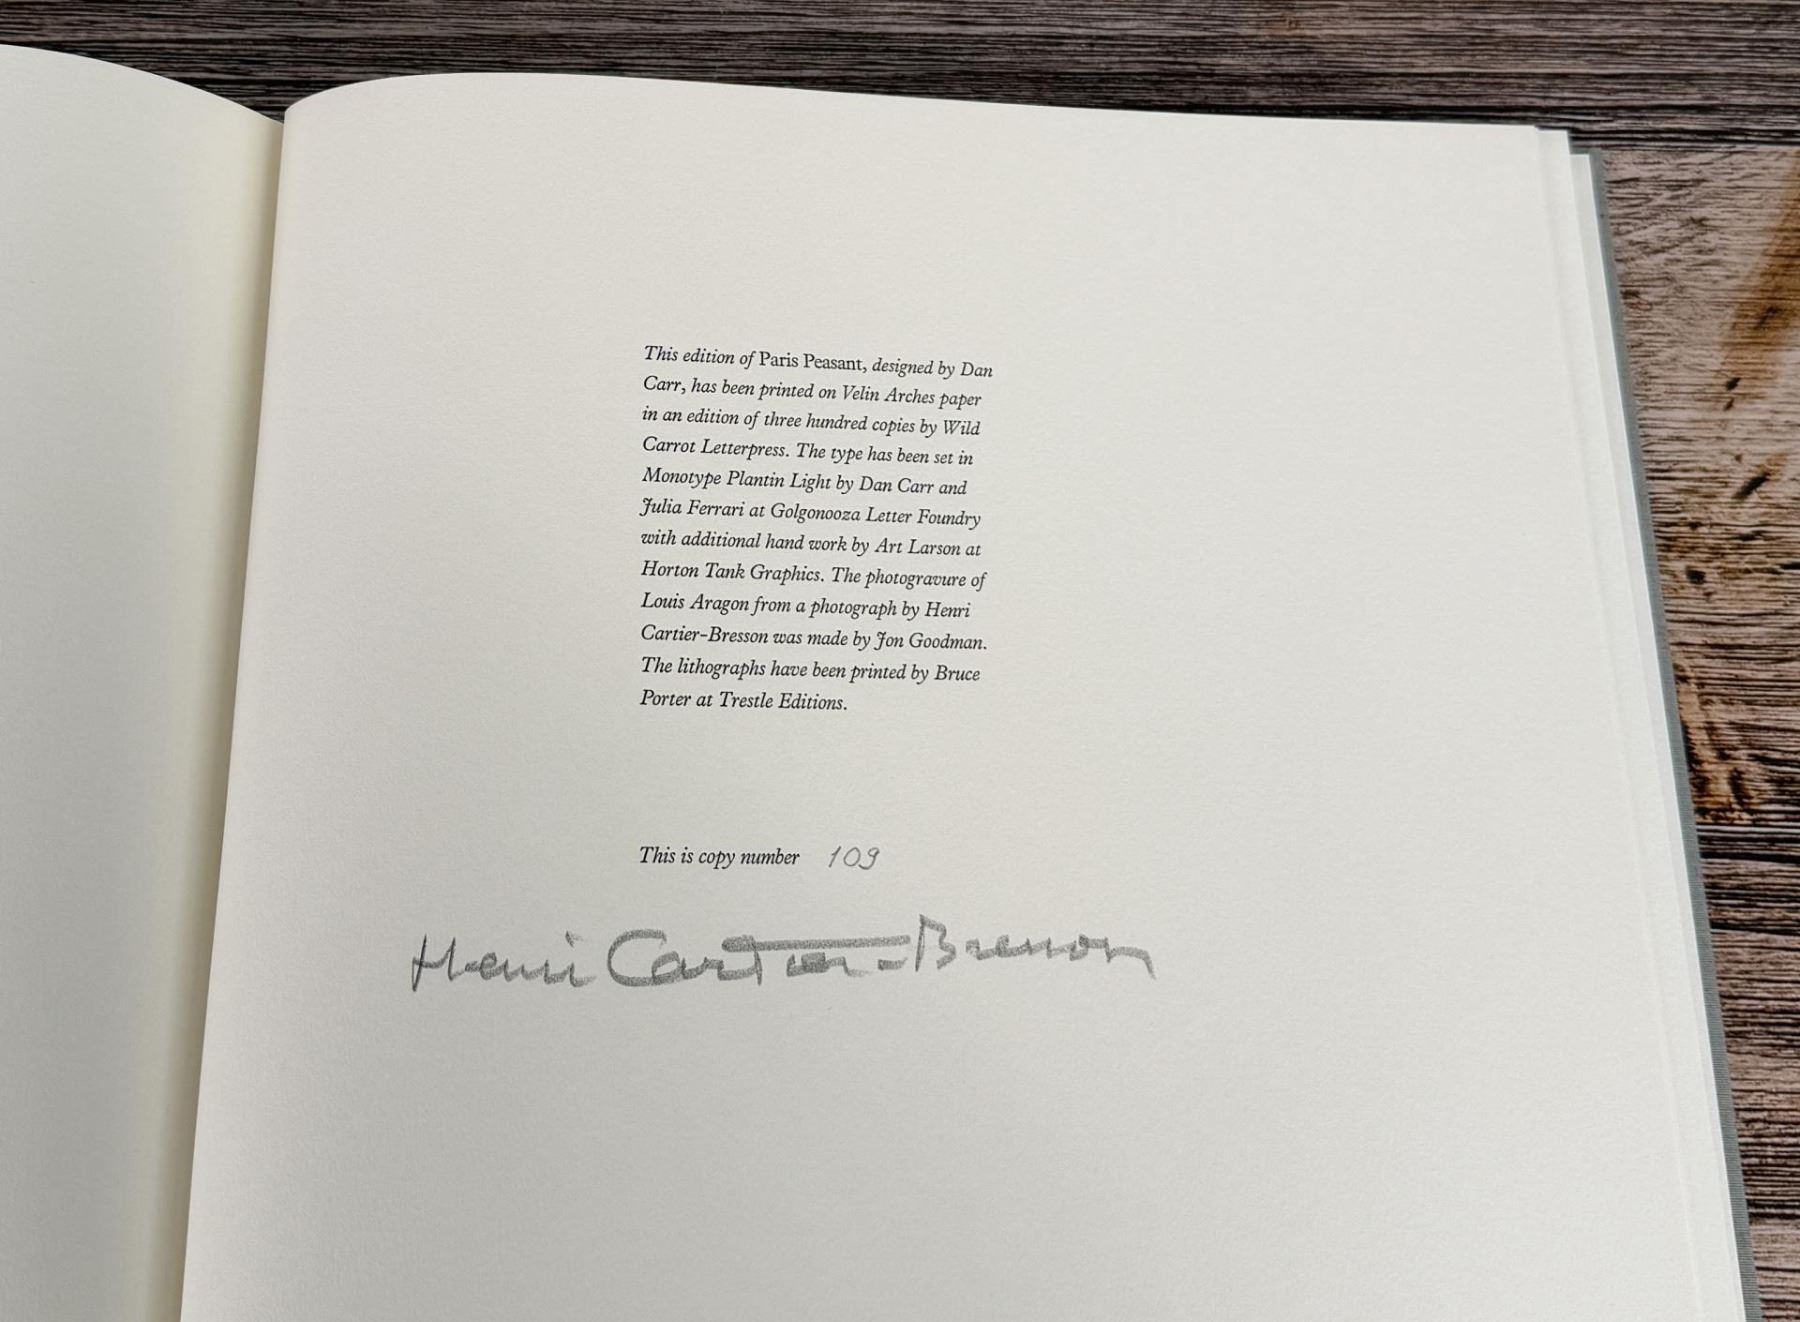 This edition of Paris Peasant, designed by Dan
Carr, has been printed on Velin Arches paper
in an edition of three hundred copies by Wild
Carrot Letterpress. The type has been set in
Monotype Plantin Light by Dan Carr and
Julia Ferrari at Golgonooza Letter Foundry
with additional hand work by Art Larson at
Horton Tank Graphics. The photogravure of
Louis Aragon from a photograph by Henri
Cartier-Bresson was made by Jon Goodman.
The lithographs have been printed by Bruce
Porter at Trestle Editions.
This is copy number 109
Henri Cartier-Bresson